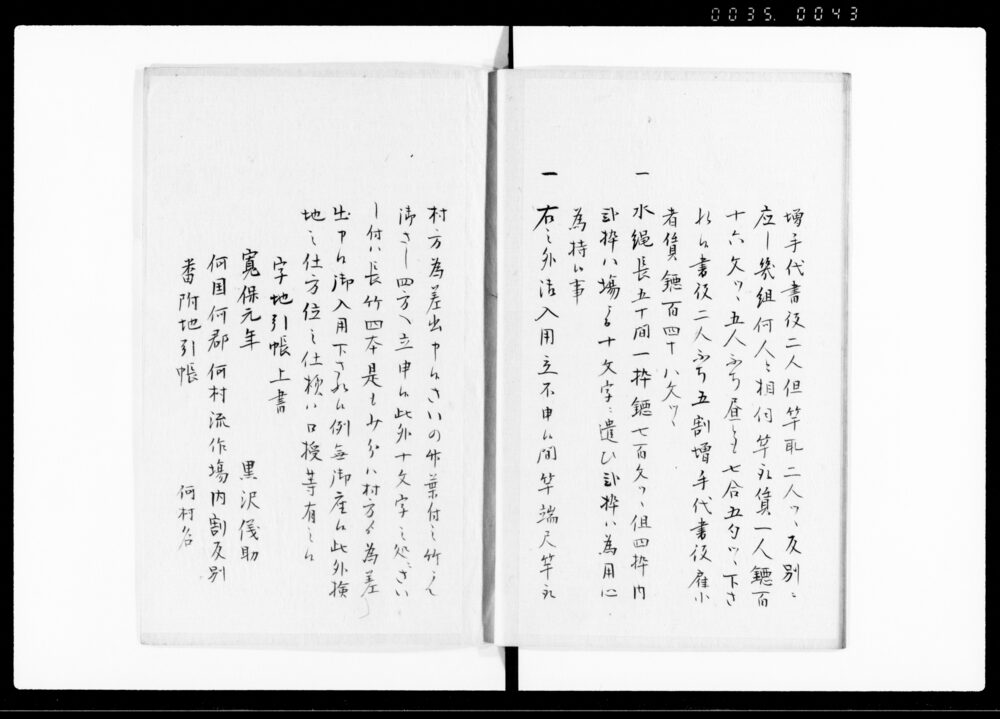 0035. 0043
増手代書役二人但竿取二人ツヽ反別ニ
応し幾組何人と相何竿取賃一人鐚百
十六文ツヽ五人ふち昼とも七合五勺ツヽ下さ
れ候書役二人ふち五割増手代書役雇小
者賃鐚百四十八文ツヽ
一 水縄長五十間一枠鐚七百文ツヽ但四枠内
弐枠ハ場所十文字ニ遣ひ弐枠ハ為用心
為持候事
一 右之外諸入用立不申候間竿端尺竿取
村方為差出申候さいの竹葉付之竹
御さし四方へ立申候此外十文字之処さい
し付ハ長竹四本是も多分ハ村方ゟ為差
出申候御入用下され候例無御座候此外検
地之仕方位之仕様ハ口授等有之候
字地引帳上書
寛保元年 黒沢儀助
何国何郡何村流作場内割反別
番附地引帳 何村名